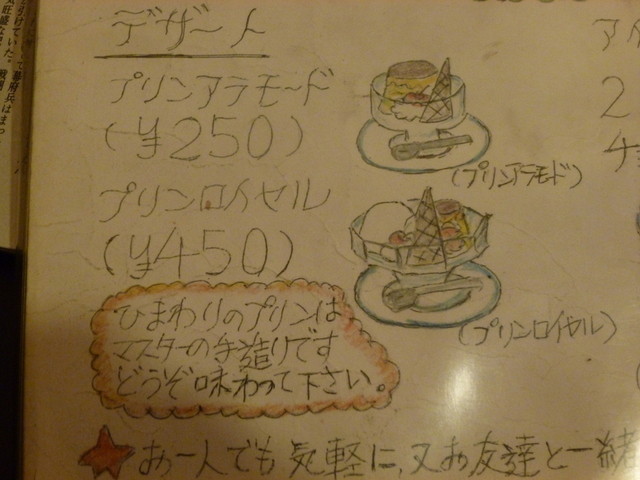 デザート
プリンアラモード
(¥250)
(プリンアラモド)
プリンロイヤル
(¥450)
(プリンロイヤル)
ひまわりのプリンは
マスターの手造りです
どうぞ味わって下さい。
お一人でも気軽に、又お友達と一緒
ア
2